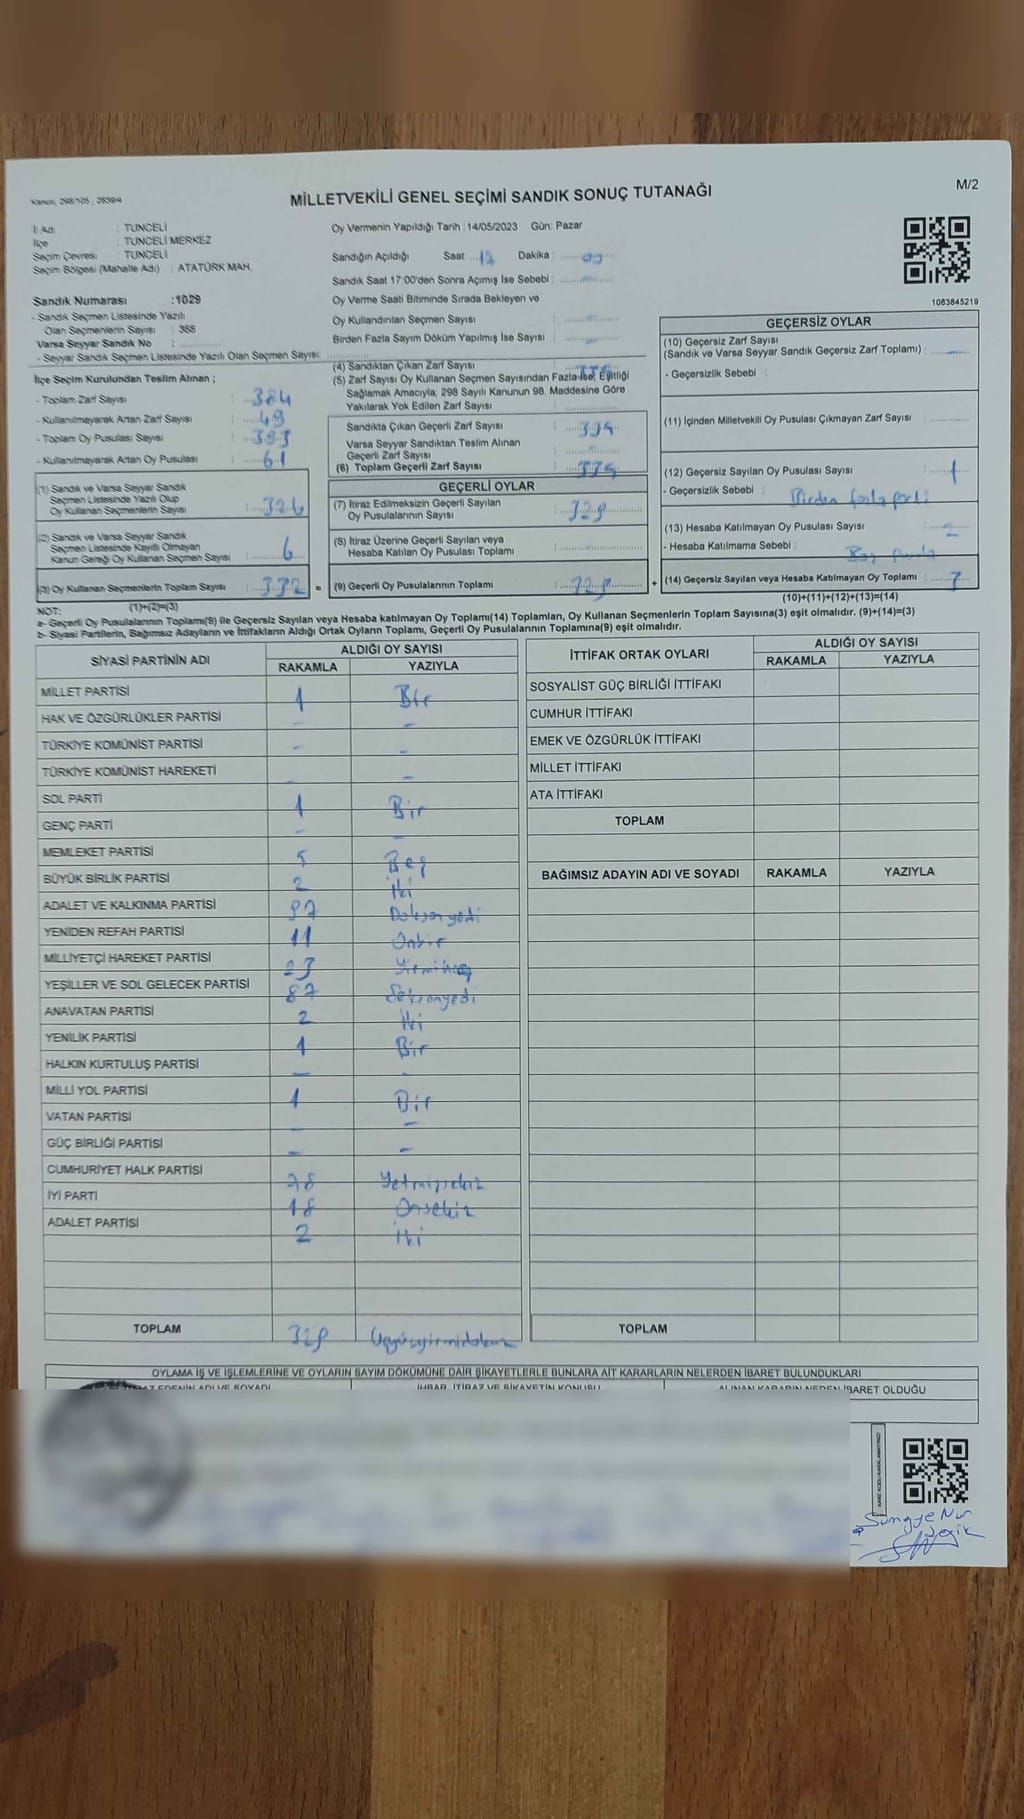 Kanun, 298/105, 2839/4
MİLLETVEKİLİ GENEL SEÇİMİ SANDIK SONUÇ TUTANAĞI
M/2
İl Adı : TUNCELİ
İlçe : TUNCELİ MERKEZ
Seçim Çevresi : TUNCELİ
Seçim Bölgesi (Mahalle Adı) : ATATÜRK MAH.
Sandık Numarası :1029
- Sandık Seçmen Listesinde Yazılı
Olan Seçmenlerin Sayısı : 368
Varsa Seyyar Sandık No :
- Seyyar Sandık Seçmen Listesinde Yazılı Olan Seçmen Sayısı:
Oy Vermenin Yapıldığı Tarih :14/05/2023 Gün: Pazar
Sandığın Açıldığı Saat: Dakika : 00
Sandık Saat 17:00'den Sonra Açımış İse Sebebi :
Oy Verme Saati Bitiminde Sırada Bekleyen ve
Oy Kullandırılan Seçmen Sayısı :
Birden Fazla Sayım Döküm Yapılmış İse Sayısı :
1083845219
İlçe Seçim Kurulundan Teslim Alınan ;
- Toplam Zarf Sayısı : 384
- Kullanılmayarak Artan Zarf Sayısı : 49
- Toplam Oy Pusulası Sayısı : 393
- Kullanılmayarak Artan Oy Pusulası : 61
(1) Sandık ve Varsa Seyyar Sandık
Seçmen Listesinde Yazılı Olup
Oy Kullanan Seçmenlerin Sayısı : 326
(2) Sandık ve Varsa Seyyar Sandık
Seçmen Listesinde Kayıtlı Olmayan
Kanun Gereği Oy Kullanan Seçmen Sayısı : 6
(3) Oy Kullanan Seçmenlerin Toplam Sayısı : 332 =
(1)+(2)=(3)
(4) Sandıktan Çıkan Zarf Sayısı :
(5) Zarf Sayısı Oy Kullanan Seçmen Sayısından Fazla İse, Eşitliği
Sağlamak Amacıyla, 298 Sayılı Kanunun 98. Maddesine Göre
Yakılarak Yok Edilen Zarf Sayısı :
Sandıkta Çıkan Geçerli Zarf Sayısı : 334
Varsa Seyyar Sandıktan Teslim Alınan
Geçerli Zarf Sayısı :
(6) Toplam Geçerli Zarf Sayısı : 334
GEÇERLİ OYLAR
(7) İtiraz Edilmeksizin Geçerli Sayılan
Oy Pusulalarının Sayısı : 329
(8) İtiraz Üzerine Geçerli Sayılan veya
Hesaba Katılan Oy Pusulası Toplamı :
(9) Geçerli Oy Pusulalarının Toplamı : 329 +
GEÇERSİZ OYLAR
(10) Geçersiz Zarf Sayısı
(Sandık ve Varsa Seyyar Sandık Geçersiz Zarf Toplamı) :
- Geçersizlik Sebebi :
(11) İçinden Milletvekili Oy Pusulası Çıkmayan Zarf Sayısı :
(12) Geçersiz Sayılan Oy Pusulası Sayısı : 1
- Geçersizlik Sebebi : Birden fazla parti
(13) Hesaba Katılmayan Oy Pusulası Sayısı : 2
- Hesaba Katılmama Sebebi : Boş pusula
(14) Geçersiz Sayılan veya Hesaba Katılmayan Oy Toplamı :
(10)+(11)+(12)+(13)=(14)
NOT:
a- Geçerli Oy Pusulalarının Toplamı(9) ile Geçersiz Sayılan veya Hesaba katılmayan Oy Toplamı(14) Toplamları, Oy Kullanan Seçmenlerin Toplam Sayısına(3) eşit olmalıdır. (9)+(14)=(3)
b- Siyasi Partilerin, Bağımsız Adayların ve İttifakların Aldığı Ortak Oyların Toplamı, Geçerli Oy Pusulalarının Toplamına(9) eşit olmalıdır.
SİYASİ PARTİNİN ADI ALDIĞI OY SAYISI
RAKAMLA YAZIYLA
MİLLET PARTİSİ 1 Bir
HAK VE ÖZGÜRLÜKLER PARTİSİ - -
TÜRKİYE KOMÜNİST PARTİSİ - -
TÜRKİYE KOMÜNİST HAREKETİ - -
SOL PARTİ 1 Bir
GENÇ PARTİ - -
MEMLEKET PARTİSİ 5 Beş
BÜYÜK BİRLİK PARTİSİ 2 İki
ADALET VE KALKINMA PARTİSİ 97 Doksanyedi
YENİDEN REFAH PARTİSİ 11 Onbir
MİLLİYETÇİ HAREKET PARTİSİ 23 Yirmiüç
YEŞİLLER VE SOL GELECEK PARTİSİ 87 Seksenyedi
ANAVATAN PARTİSİ 2 İki
YENİLİK PARTİSİ 1 Bir
HALKIN KURTULUŞ PARTİSİ - -
MİLLİ YOL PARTİSİ 1 Bir
VATAN PARTİSİ - -
GÜÇ BİRLİĞİ PARTİSİ - -
CUMHURİYET HALK PARTİSİ 78 Yetmişsekiz
İYİ PARTİ 18 Onsekiz
ADALET PARTİSİ 2 İki
TOPLAM 329 Üçyüzyirmidokuz
İTTİFAK ORTAK OYLARI ALDIĞI OY SAYISI
RAKAMLA YAZIYLA
SOSYALİST GÜÇ BİRLİĞİ İTTİFAKI
CUMHUR İTTİFAKI
EMEK VE ÖZGÜRLÜK İTTİFAKI
MİLLET İTTİFAKI
ATA İTTİFAKI
TOPLAM
BAĞIMSIZ ADAYIN ADI VE SOYADI RAKAMLA YAZIYLA
TOPLAM
OYLAMA İŞ VE İŞLEMLERİNE VE OYLARIN SAYIM DÖKÜMÜNE DAİR ŞİKAYETLERLE BUNLARA AİT KARARLARIN NELERDEN İBARET BULUNDUKLARI
İHBAR, İTİRAZ VE ŞİKAYETİN KONUSU ALINAN KARARIN NEDEN İBARET OLDUĞU